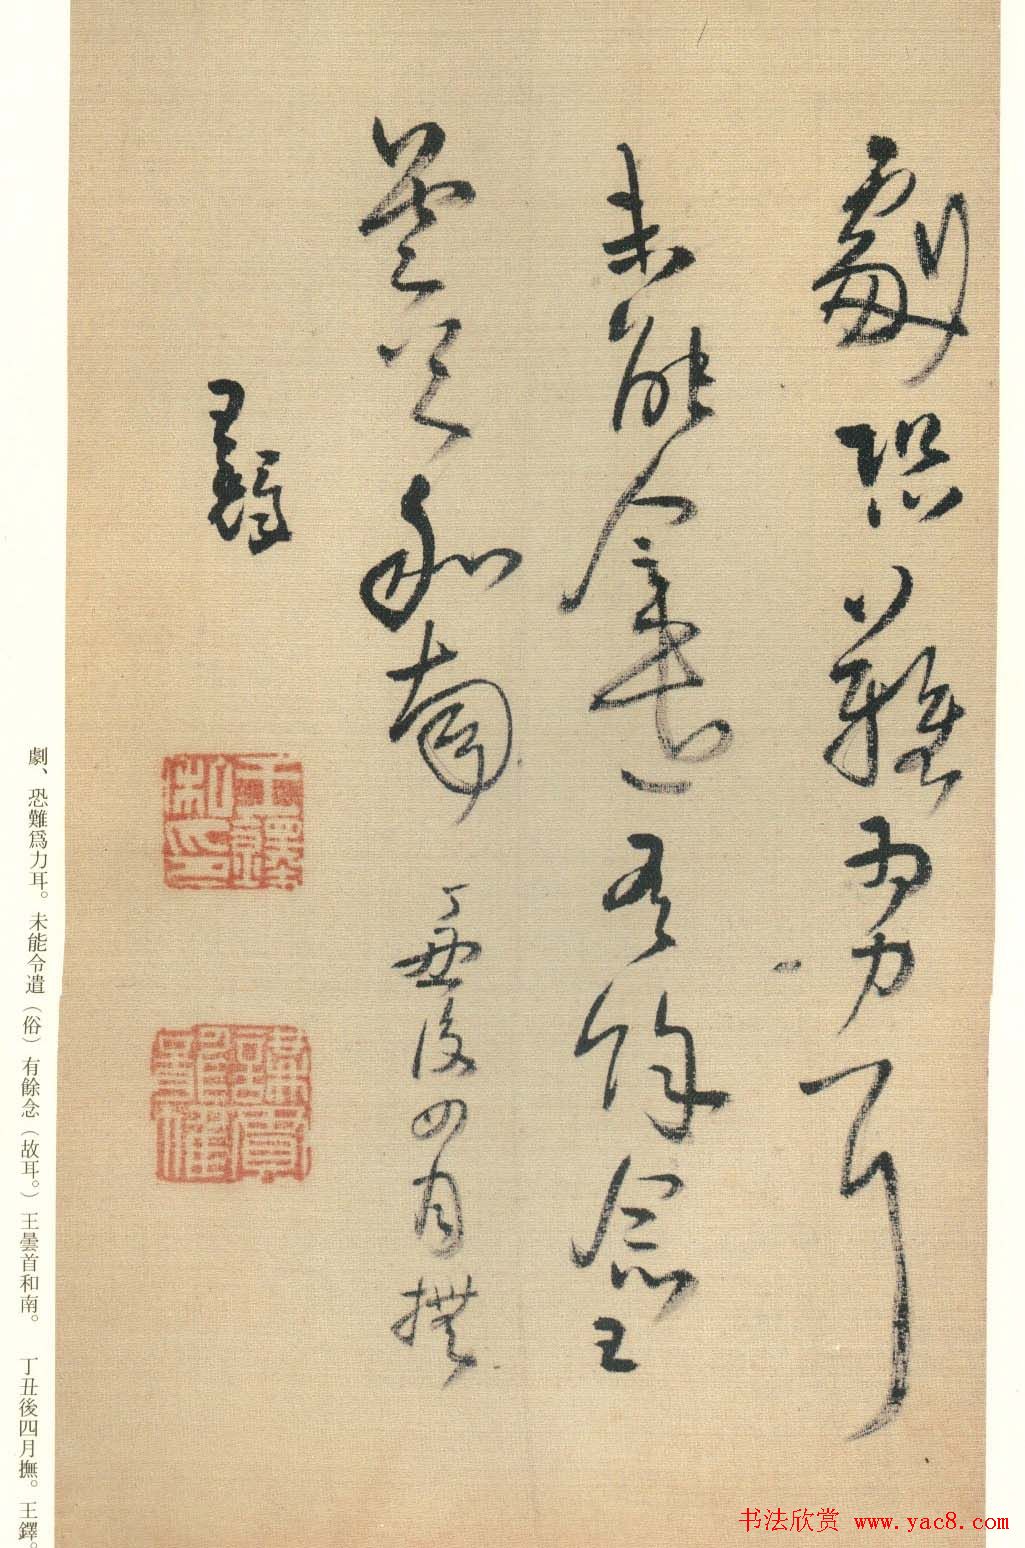 劇恐難為力耳
未能令遣有餘念王
曇首和南 丁丑後四月撫
王鐸
王鐸私印
劇、恐難爲力耳。未能令遣（俗）有餘念（故耳。）王曇首和南。 丁丑後四月撫。王鐸。
书法欣赏 www.yac8.com